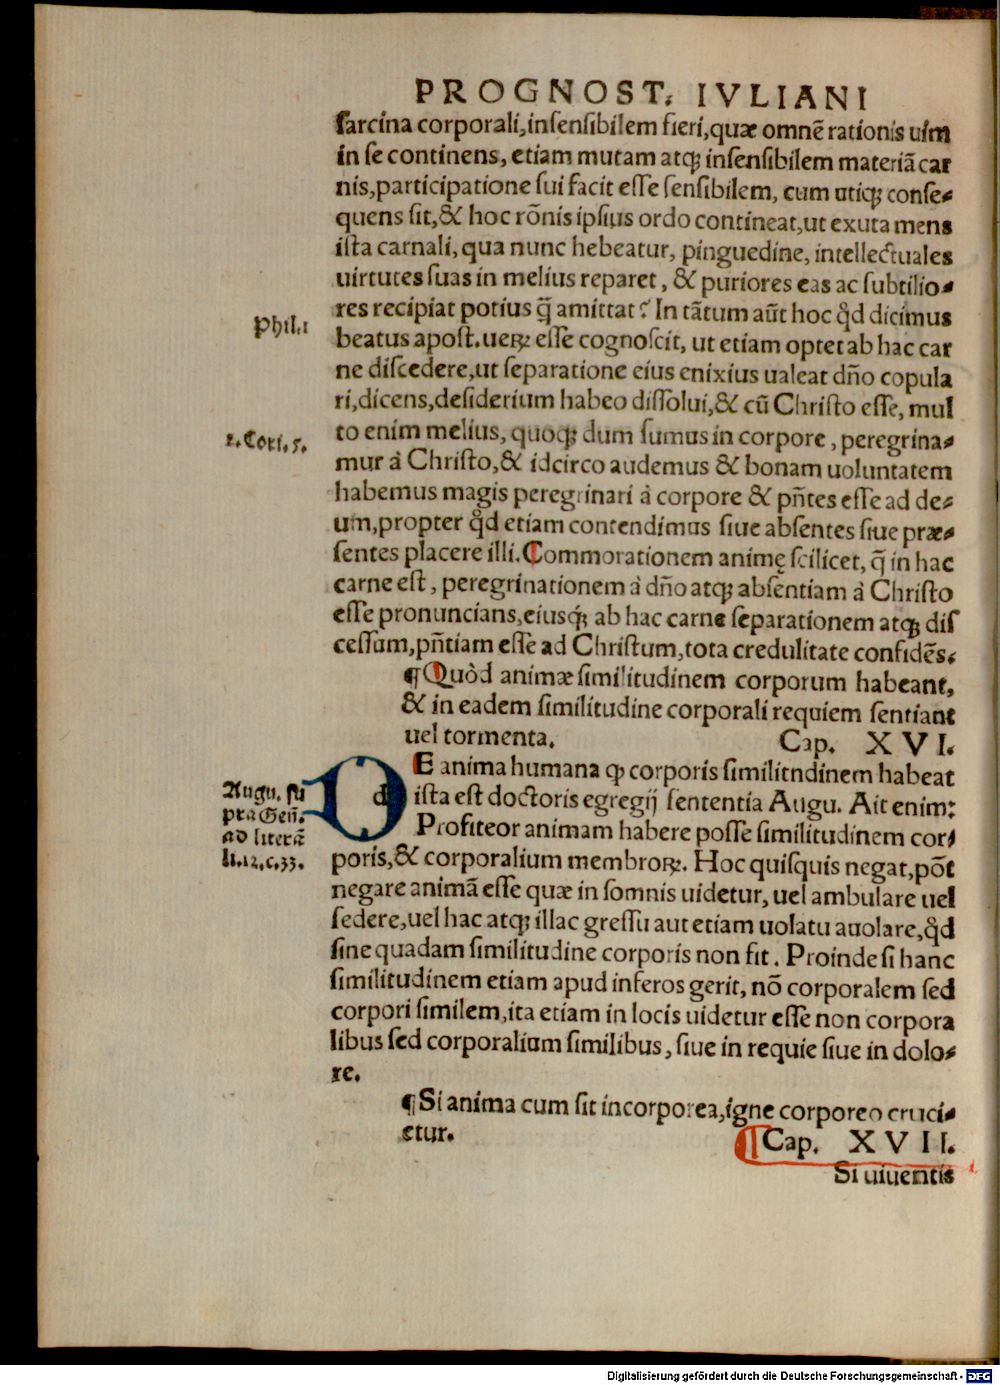 PROGNOST. IVLIANI
sarcina corporali, insensibilem fieri, quæ omnẽ rationis uim
in se continens, etiam mutam atq; insensibilem materiã car
nis, participatione sui facit esse sensibilem, cum utiq; conse-
quens sit, & hoc rõnis ipsius ordo contineat, ut exuta mens
ista carnali, qua nunc hebeatur, pinguedine, intellectuales
uirtutes suas in melius reparet, & puriores eas ac subtilio-
res recipiat potius q̃ amittat? In tãtum aũt hoc qd̓ dicimus
Phil.1
beatus apost. ueꝝ esse cognoscit, ut etiam optet ab hac car
ne discedere, ut separatione eius enixius ualeat dño copula
ri, dicens, desiderium habeo dissolui, & cũ Christo esse, mul
2.Cori.5.
to enim melius, quoq; dum sumus in corpore, peregrina-
mur à Christo, & idcirco audemus & bonam uoluntatem
habemus magis peregrinari à corpore & pñtes esse ad de-
um, propter qd̓ etiam contendimus siue absentes siue præ-
sentes placere illi. Commorationem animę scilicet, q̃ in hac
carne est, peregrinationem à dño atq; absentiam à Christo
esse pronuncians, eiusq́; ab hac carne separationem atq; dis
cessum, pñtiam esse ad Christum, tota credulitate confidẽs.
¶Quòd animæ similitudinem corporum habeant,
& in eadem similitudine corporali requiem sentiant
uel tormenta. Cap. XVI.
DE anima humana ꝙ corporis similitndinem habeat
Augu. su
pra Geñ.
ad literã
li.12.c.33.
ista est doctoris egregij sententia Augu. Ait enim:
Profiteor animam habere posse similitudinem cor-
poris, & corporalium membroꝝ. Hoc quisquis negat, põt
negare animã esse quæ in somnis uidetur, uel ambulare uel
sedere, uel hac atq; illac gressu aut etiam uolatu auolare, qd̓
sine quadam similitudine corporis non fit. Proinde si hanc
similitudinem etiam apud inferos gerit, nõ corporalem sed
corpori similem, ita etiam in locis uidetur esse non corpora
libus sed corporalium similibus, siue in requie siue in dolo-
re.
¶Si anima cum sit incorporea, igne corporeo cruci-
etur. ¶Cap. XVII.
Si uiuentis
Digitalisierung gefördert durch die Deutsche Forschungsgemeinschaft - DFG